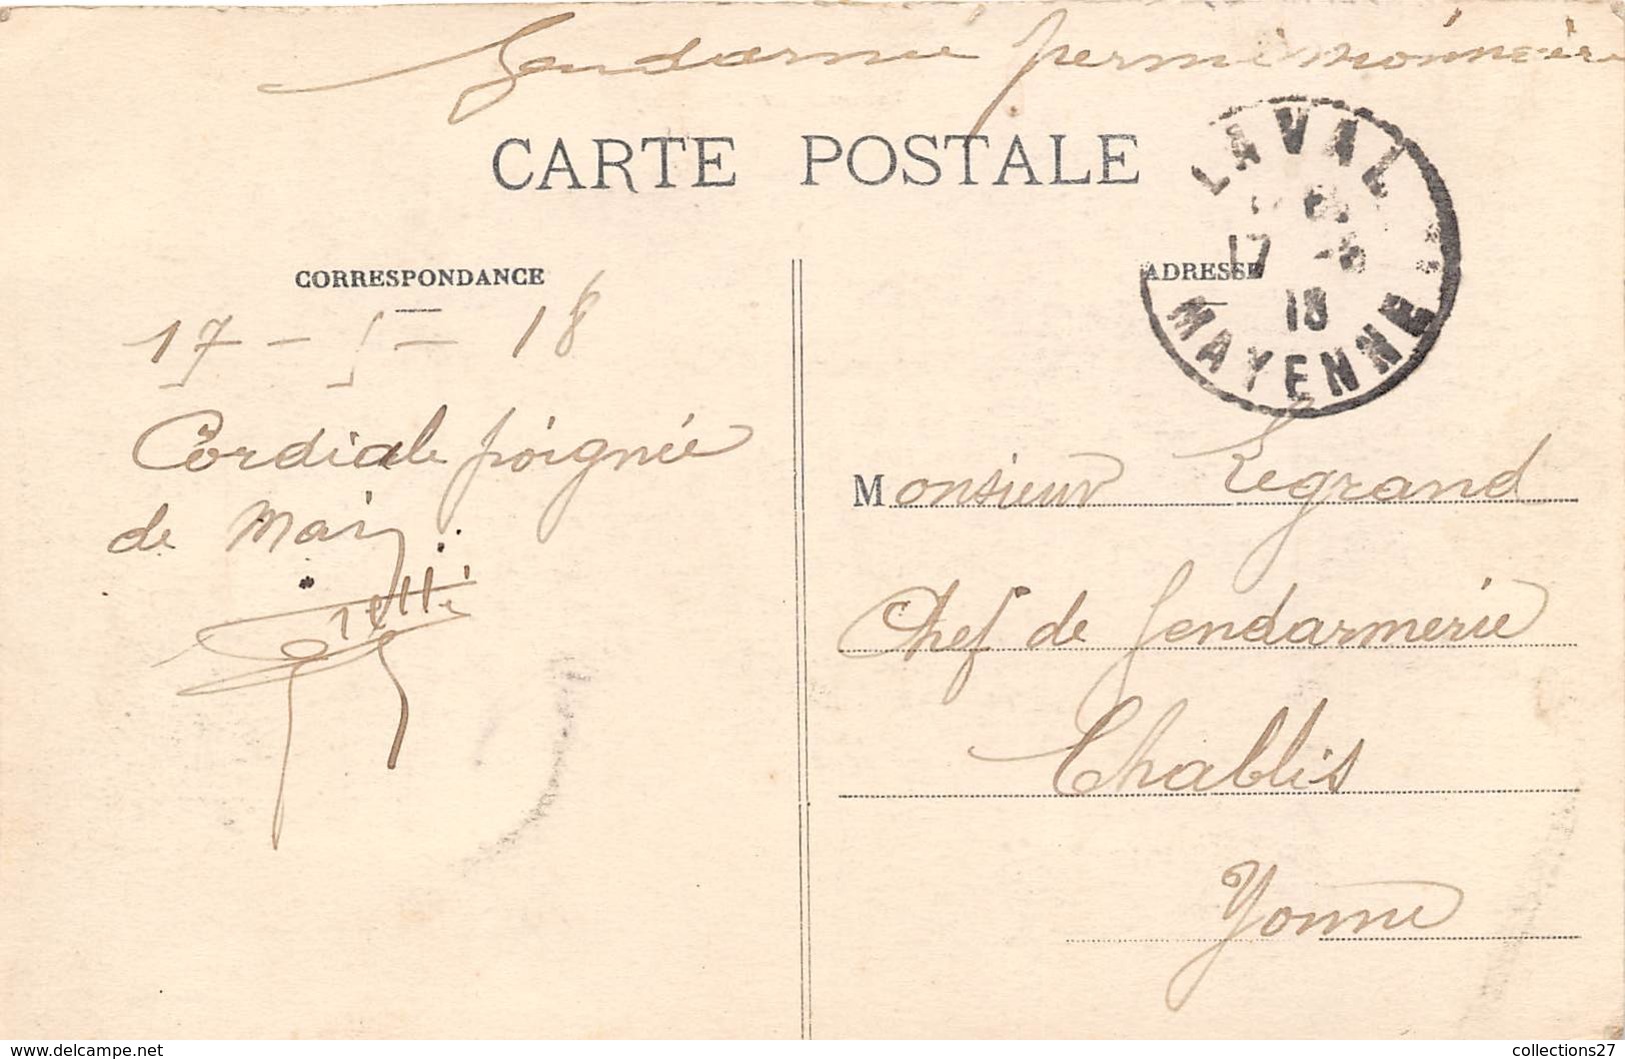 Gendarme permissionnaire
CARTE POSTALE
LAVAL
17 -5
18
MAYENNE
CORRESPONDANCE
ADRESSE
17 - 5 - 18
Cordiale poignée
de Main
Monsieur Legrand
Chef de Gendarmerie
Chablis
Yonne
collections27